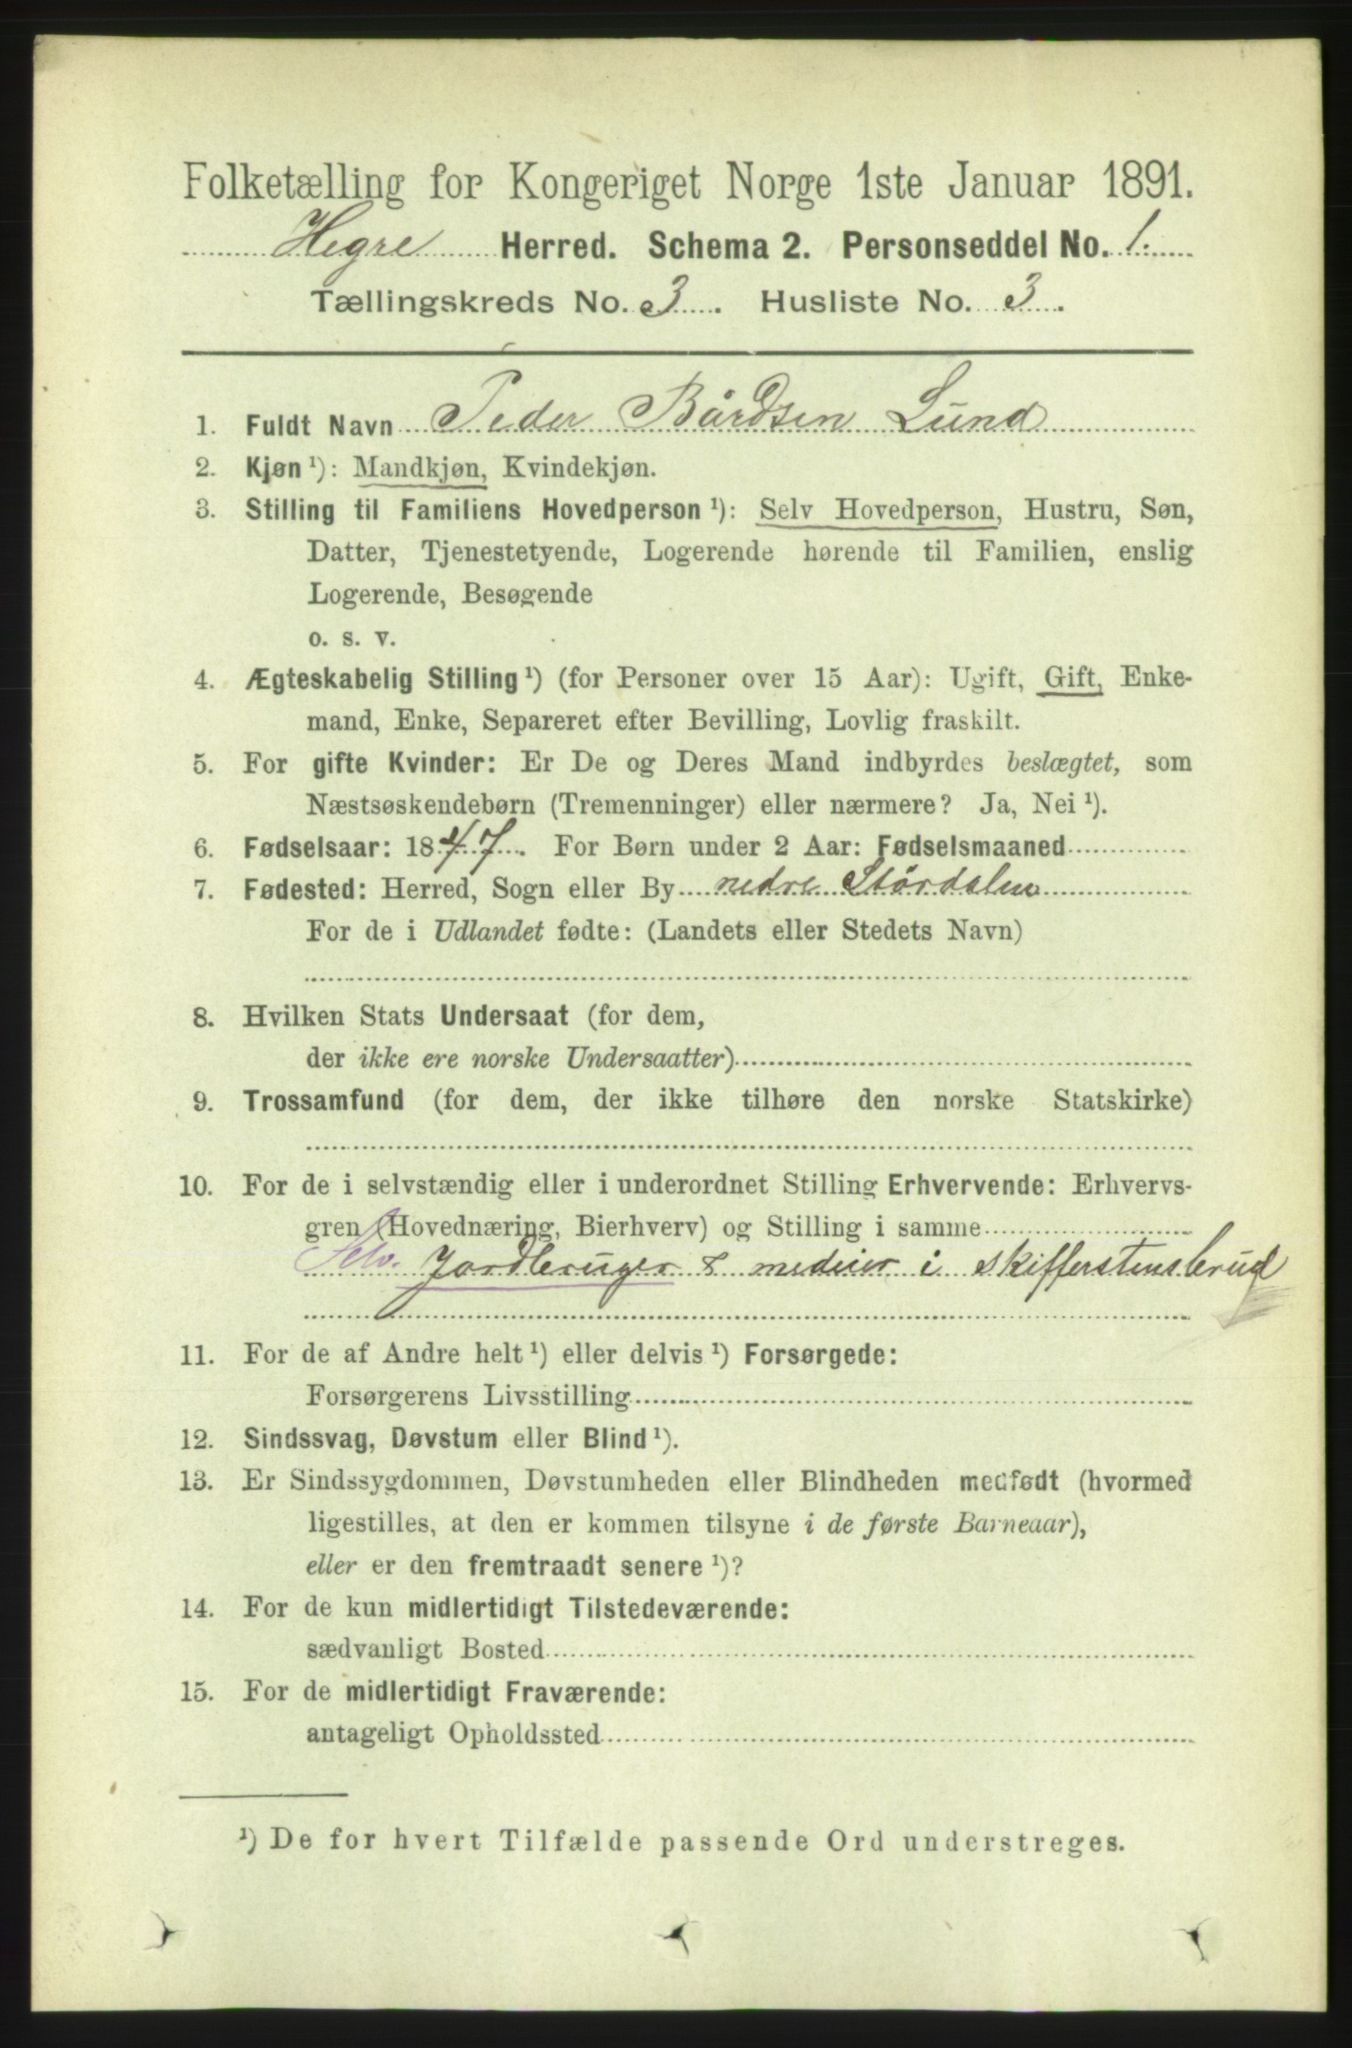 Folketælling for Kongeriget Norge 1ste Januar 1891.
Hegre Herred. Schema 2. Personseddel No. 1.
Tællingskreds No. 3. Husliste No. 3.
1. Fuldt Navn Peder Bårdsen Lund
2. Kjøn ¹): Mandkjøn, Kvindekjøn.
3. Stilling til Familiens Hovedperson ¹): Selv Hovedperson, Hustru, Søn,
Datter, Tjenestetyende, Logerende hørende til Familien, enslig
Logerende, Besøgende
o. s. v.
4. Ægteskabelig Stilling ¹) (for Personer over 15 Aar): Ugift, Gift, Enke-
mand, Enke, Separeret efter Bevilling, Lovlig fraskilt.
5. For gifte Kvinder: Er De og Deres Mand indbyrdes beslægtet, som
Næstsøskendebørn (Tremenninger) eller nærmere? Ja, Nei ¹).
6. Fødselsaar: 1847. For Børn under 2 Aar: Fødselsmaaned
7. Fødested: Herred, Sogn eller By nedre Størdalen
For de i Udlandet fødte: (Landets eller Stedets Navn)
8. Hvilken Stats Undersaat (for dem,
der ikke ere norske Undersaatter)
9. Trossamfund (for dem, der ikke tilhøre den norske Statskirke)
10. For de i selvstændig eller i underordnet Stilling Erhvervende: Erhvervs-
gren (Hovednæring, Bierhverv) og Stilling i samme
Selv. Jordbruger & medeier i skifferstensbrud
11. For de af Andre helt ¹) eller delvis ¹) Forsørgede:
Forsørgerens Livsstilling
12. Sindssvag, Døvstum eller Blind ¹).
13. Er Sindssygdommen, Døvstumheden eller Blindheden medfødt (hvormed
ligestilles, at den er kommen tilsyne i de første Barneaar),
eller er den fremtraadt senere ¹)?
14. For de kun midlertidigt Tilstedeværende:
sædvanligt Bosted
15. For de midlertidigt Fraværende:
antageligt Opholdssted
¹) De for hvert Tilfælde passende Ord understreges.